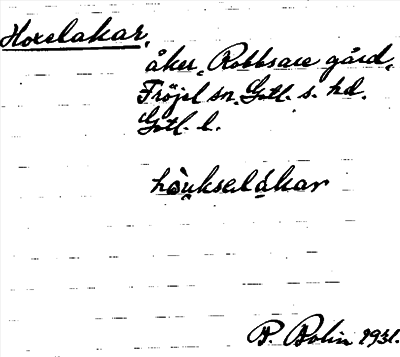 Hoxelakar,
åker, Robbsare gård,
Fröjel sn. Gotl. s. hd.
Gotl. l.
hòu̯ksəlákar
P. Bolin 1931.